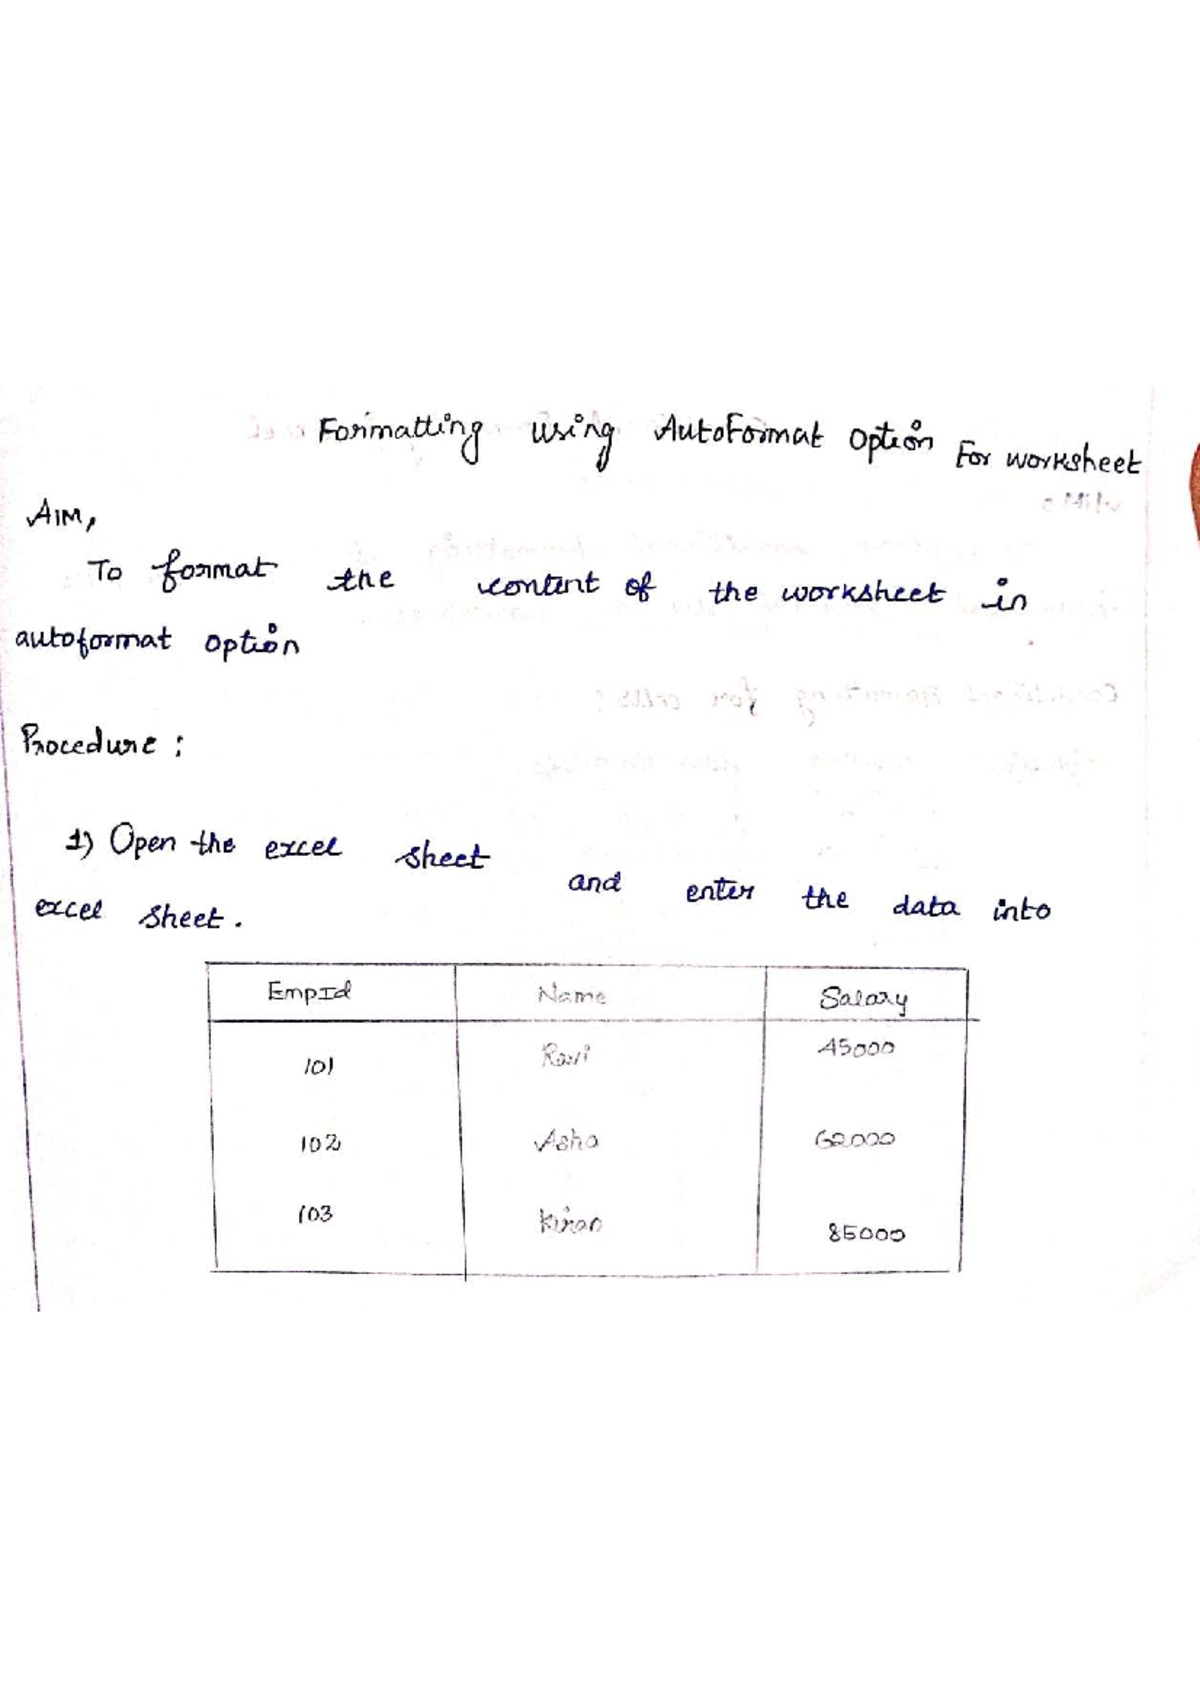 Formatting using AutoFormat option For worksheet
AIM,
To format the content of the worksheet in
autoformat option
Procedure :
1) Open the excel sheet and enter the data into
excel sheet.
EmpId Name Salary
101 Ravi 45000
102 Asha 62000
103 Kiran 85000